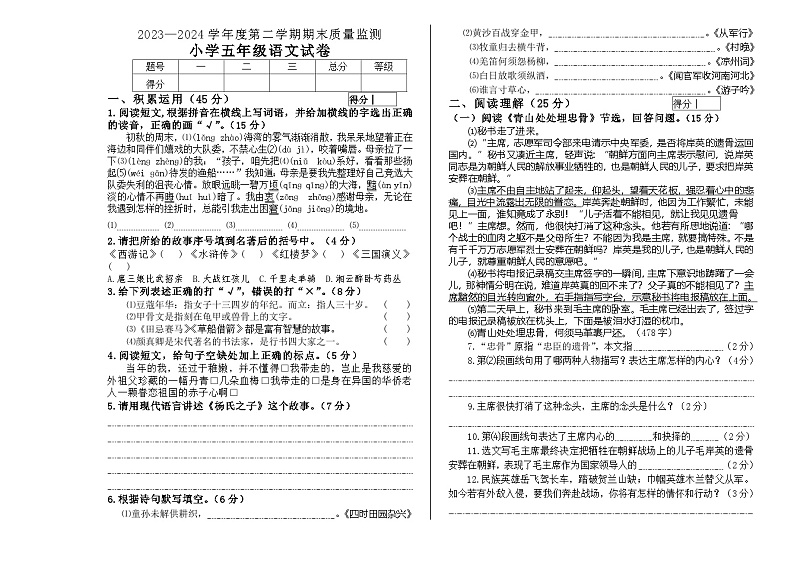 2023—2024学年度第二学期期末质量监测
小学五年级语文试卷
题号 一 二 三 总分 等级
得分
一、积累运用（45分）
得分
1.阅读短文,根据拼音在横线上写词语，并给加横线的字选出正确
的读音，正确的画“√”。（15分）
初秋的周末，⑴(lǒng zhào)海湾的雾气渐渐消散，我呆呆地望着正在
海边和同伴们嬉戏的大队委，不禁心生⑵(dù jì)，咬着嘴唇。母亲拉了一
下⑶(lèng zhēng)的我：“孩子，咱先把⑷(niǔ kòu)系好，看看那些扬
起⑸(wéi gān)待发的渔船……”我知道，母亲是要我先整理好自己竞选大
队委失利的沮丧心情。放眼远眺一碧万顷(qīng qǐng)的大海，黯(àn yīn)
淡的心情不再晦(huì huǐ)暗了。我由衷(zōng zhōng)感谢母亲，无论在
我遇到怎样的挫折时，总能引我走出困窘(jǒng jiǒng)的境地。
⑴ ⑵ ⑶ ⑷ ⑸
2.请把所给的故事序号填到名著后的括号中。（4分）
《西游记》（ ）《水浒传》（ ）《红楼梦》（ ）《三国演义》
（ ）
A.扈三娘比武招亲 B.大战红孩儿 C.千里走单骑 D.湘云醉卧芍药丛
3.给下列表述正确的打“√”，错误的打“×”。（8分）
⑴豆蔻年华：指女子十三四岁的年纪。而立：指人三十岁。 （ ）
⑵甲骨文是指刻在龟甲或兽骨上的文字。 （ ）
⑶《田忌赛马》《草船借箭》都是富有智慧的故事。 （ ）
⑷颜真卿是宋代著名的书法家，是行书四大家之一。 （ ）
4.阅读短文，给句子空缺处加上正确的标点。（5分）
当年的我，还过于稚嫩，并不懂得□我带走的，岂止是我慈爱的
外祖父珍藏的一幅丹青□几朵血梅□我带走的□是身在异国的华侨老
人一颗眷恋祖国的赤子心啊□
5.请用现代语言讲述《杨氏之子》这个故事。（7分）
6.根据诗句默写填空。（6分）
⑴童孙未解供耕织， 。《四时田园杂兴》
⑵黄沙百战穿金甲， 。《从军行》
⑶牧童归去横牛背， 。《村晚》
⑷羌笛何须怨杨柳， 。《凉州词》
⑸白日放歌须纵酒， 。《闻官军收河南河北》
⑹谁言寸草心， 。《游子吟》
二、阅读理解（25分）
得分
（一）阅读《青山处处埋忠骨》节选，回答问题。（15分）
⑴秘书走了进来。
⑵“主席，志愿军司令部来电请示中央军委，是否将岸英的遗骨运回
国内。”秘书又凑近主席，轻声说：“朝鲜方面向主席表示慰问，说岸英
同志是为朝鲜人民的解放事业牺牲的，也是朝鲜人民的儿子，要求把岸英
安葬在朝鲜。”
⑶主席不由自主地站了起来，仰起头，望着天花板，强忍着心中的悲
痛，目光中流露出无限的眷恋。岸英奔赴朝鲜时，他因为工作繁忙，未能
见上一面，谁知竟成了永别！“儿子活着不能相见，就让我见见遗骨
吧！”主席想。然而，他很快打消了这种念头。他若有所思地说道：“哪
个战士的血肉之躯不是父母所生？不能因为我是主席，就要搞特殊。不是
有千千万万志愿军烈士安葬在朝鲜吗？岸英是我的儿子，也是朝鲜人民的
儿子，就尊重朝鲜人民的意愿吧。”
⑷秘书将电报记录稿交主席签字的一瞬间，主席下意识地踌躇了一会
儿，那神情分明在说，难道岸英真的回不来了？父子真的不能相见了？主
席黯然的目光转向窗外，右手指指写字台，示意秘书将电报稿放在上面。
⑸第二天早上，秘书来到毛主席的卧室。毛主席已经出去了，签过字
的电报记录稿被放在枕头上，下面是被泪水打湿的枕巾。
⑹青山处处埋忠骨，何须马革裹尸还。（478字）
7.“忠骨”原指“忠臣的遗骨”，本文指 （2分）
8.第⑵段画线句用了哪两种人物描写？表达主席怎样的内心？（4分）
9.主席很快打消了这种念头，主席的念头是什么？（2分）
10.第⑷段画线句表达了主席内心的 和抉择的 （2分）
11.选文写毛主席最终决定把牺牲在朝鲜战场上的儿子毛岸英的遗骨
安葬在朝鲜，表现了毛主席作为国家领导人的 （2分）
12.民族英雄岳飞驾长车，踏破贺兰山缺；巾帼英雄木兰替父从军。
如今若有外敌入侵，要我们奔赴战场，你将有怎样的情怀和行动？（3分）